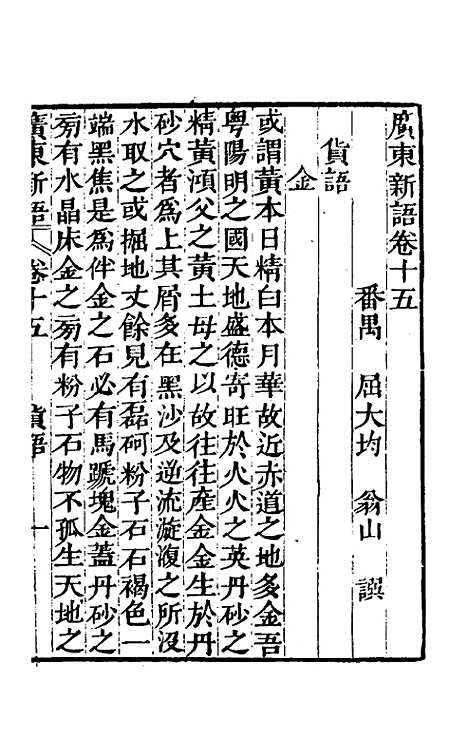 廣東新語卷十五
番禺 屈大均 翁山 譔
貨語
金
或謂黃本日精白本月華故近赤道之地多金吾
粤陽明之國天地盛德寄旺於火火之英丹砂之
精黃澒父之黃土母之以故往往産金金生於丹
砂穴者爲上其屑多在黑沙及逆流漩澓之所沒
水取之或掘地丈餘見有磊砢粉子石石褐色一
端黑焦是爲伴金之石必有馬蹏塊金蓋丹砂之
㫄有水晶床金之㫄有粉子石物不孤生天地之
廣東新語 卷十五 貨語 一